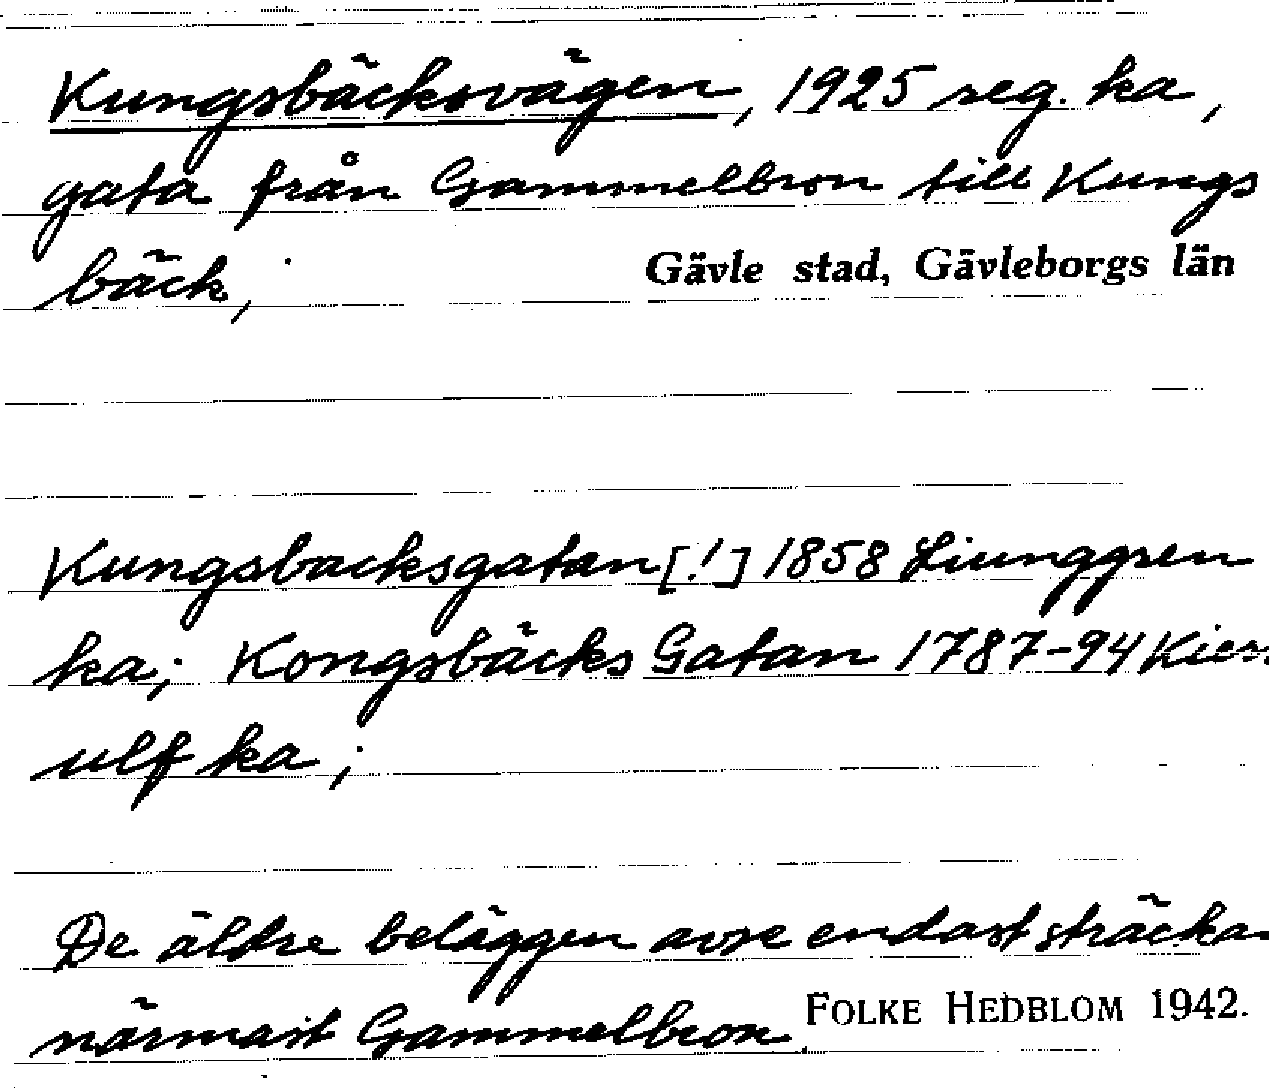 Kungsbäcksvägen, 1925 reg. ka,
gata från Gammelbron till Kungs
bäck;
Gävle stad, Gävleborgs län
Kungsbacksgatan [!] 1858 Liunggren
ka; Kongsbäcks Gatan 1787-94 Kier
ulf ka;
De äldre beläggen avse endast sträckan
närmast Gammelbron.
FOLKE HEDBLOM 1942.